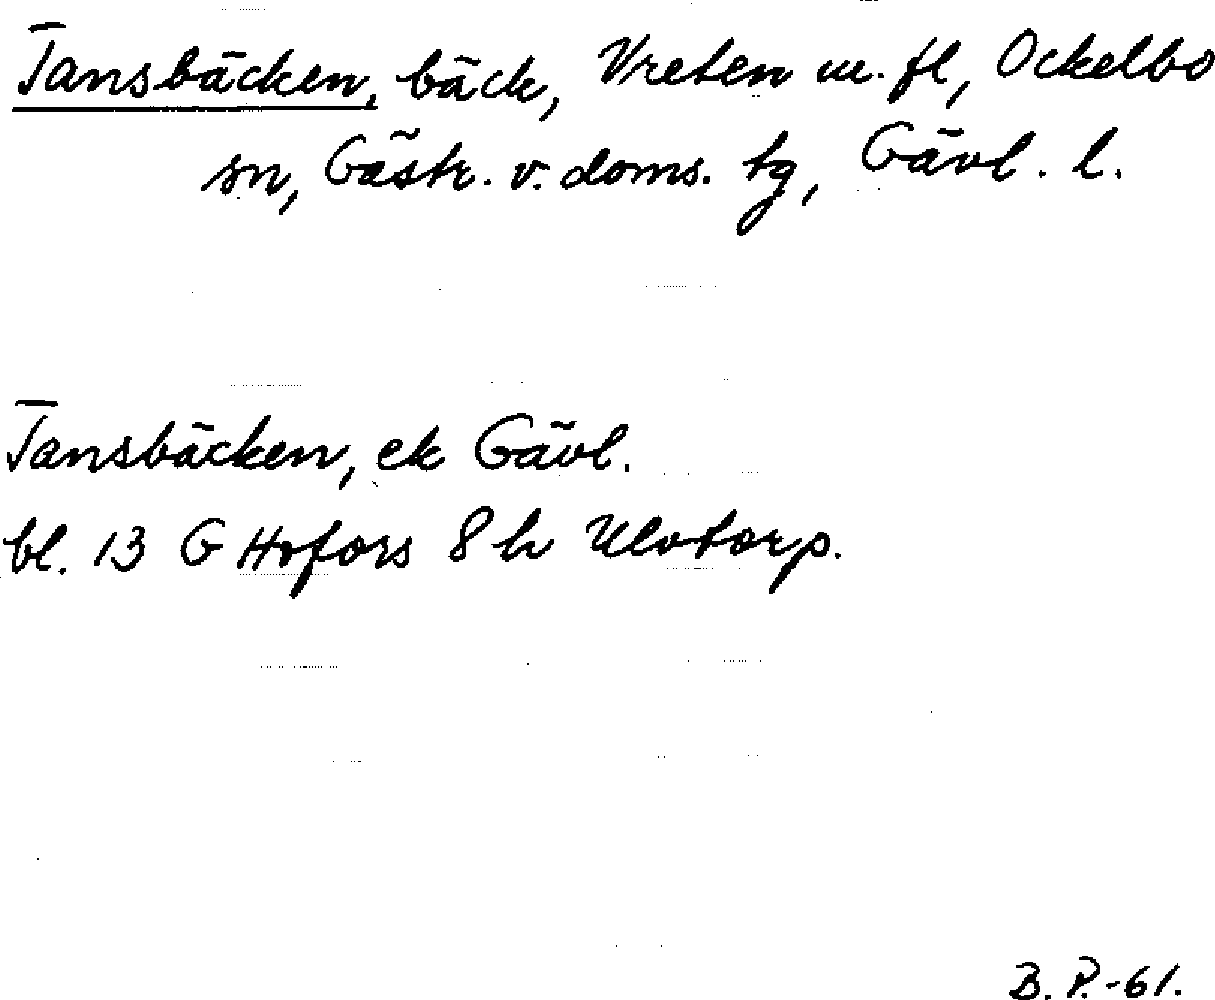 Tansbäcken, bäck, Vreten m. fl, Ockelbo
sn, Gästr. v. doms. tg, Gävl. l.
Tansbäcken, ek Gävl.
bl. 13 G Hofors 8 h Ulvtorp.
B. P. -61.